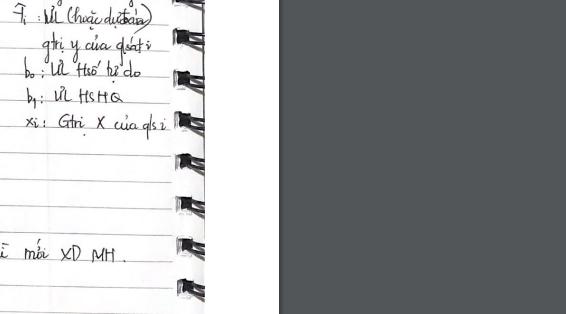 Ŷi : ƯL (hoặc dự đoán)
gtrị y của qsát i
b₀ : ƯL Hsố tự do
b₁ : ƯL HSHQ
xi : Gtrị X của qs i
mới XD MH.